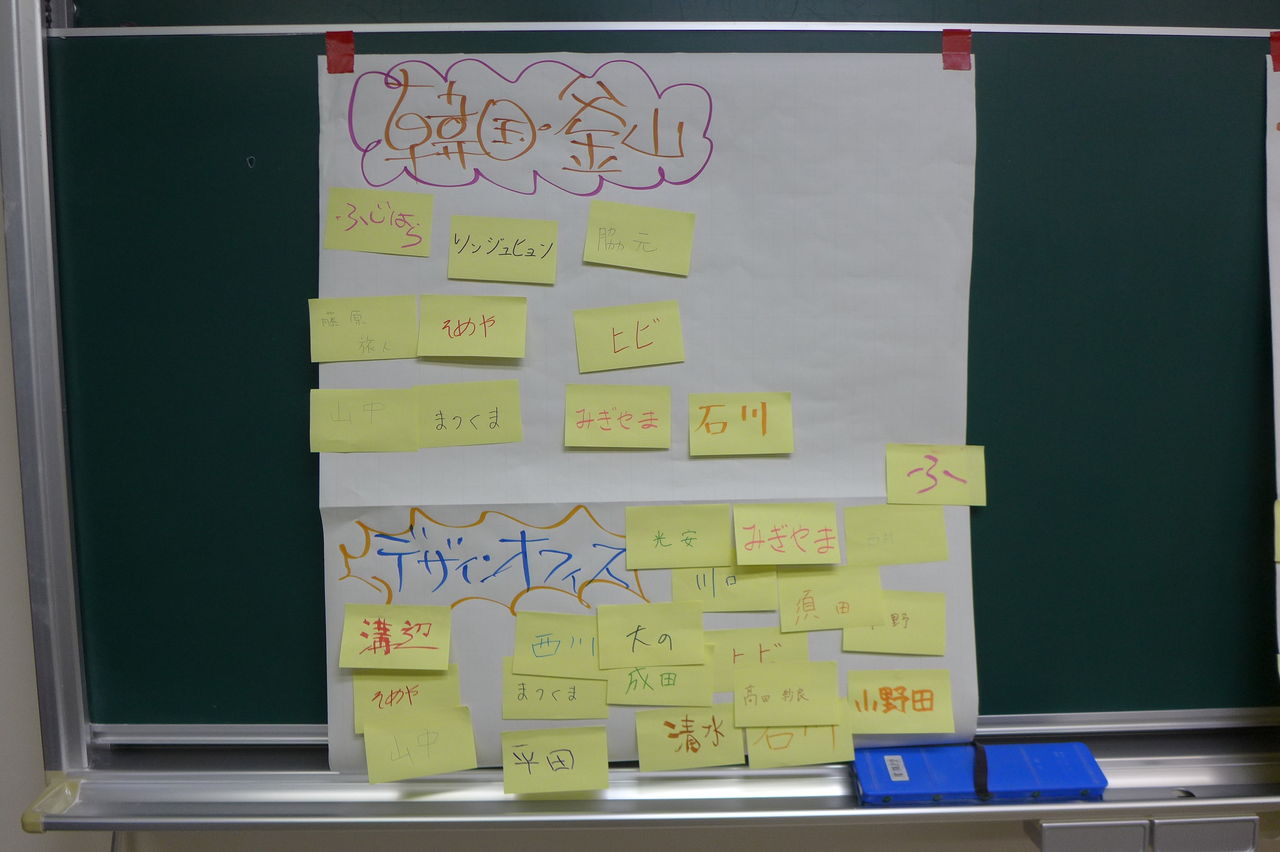 韓国・釜山
ふじはら
リンジュヒョン
脇元
藤原
旅人
そめや
ヒビ
山中
まつくま
みぎやま
石川
ふー
デザインオフィス
光安
みぎやま
川口
須田
野
溝辺
西川
大の
ヒビ
そめや
まつくま
成田
高田
小野田
山中
平田
清水
石川